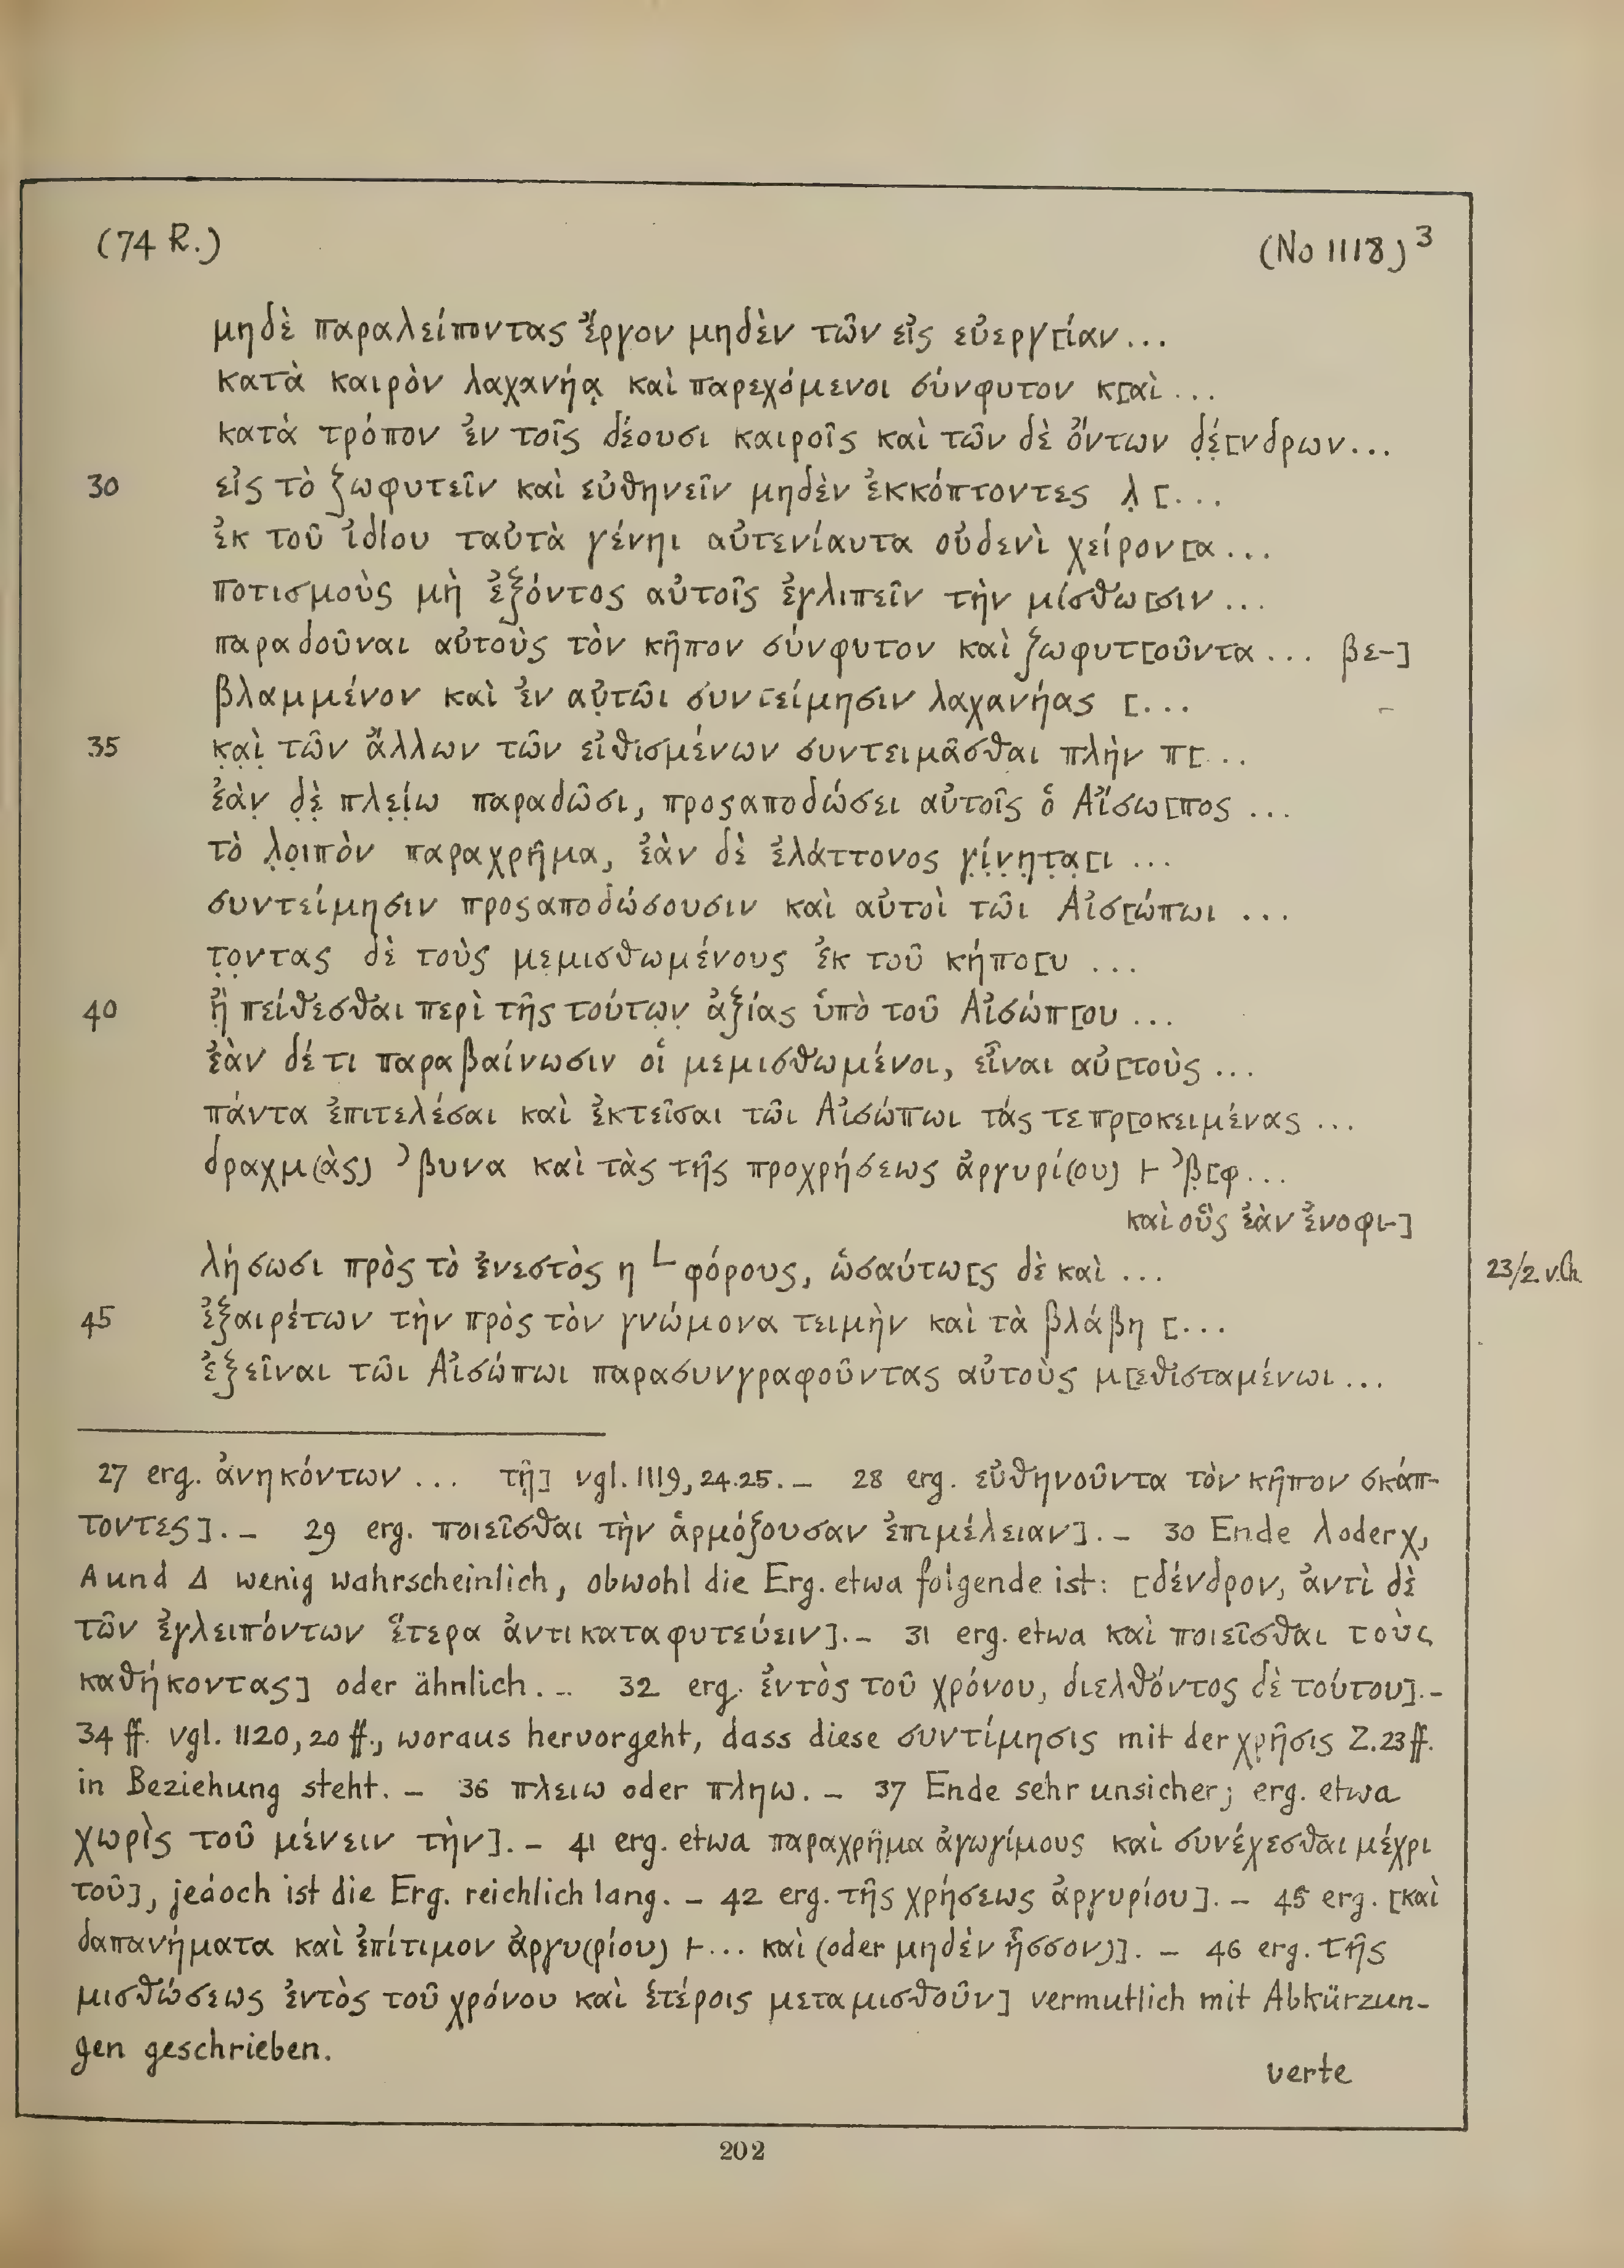 (74 R.) (No 1118) 3
μηδὲ παραλείποντας ἔργον μηδὲν τῶν εἰς εὐεργ[ίαν...
κατὰ καιρὸν λαχανήα̣ καὶ παρεχόμενοι σύνφυτον κ[αὶ...
κατὰ τρόπον ἐν τοῖς δέουσι καιροῖς καὶ τῶν δὲ ὄντων δ̣έ̣[νδρων...
30 εἰς τὸ ζωφυτεῖν καὶ εὐθηνεῖν μηδὲν ἐκκόπτοντες λ̣ [...
ἐκ τοῦ ἰδίου ταὐτὰ γένηι αὐτενίαυτα οὐδενὶ χείρον[α...
ποτισμοὺς μὴ ἐξόντος αὐτοῖς ἐγλιπεῖν τὴν μίσθω[σιν...
παραδοῦναι αὐτοὺς τὸν κῆπον σύνφυτον καὶ ζωφυτ[οῦντα... βε-]
βλαμμένον καὶ ἐν αὐ̣τῶι συντείμησιν λαχανήας [...
35 κ̣α̣ὶ̣ τῶν ἄλλων τῶν εἰθισμένων συντειμᾶσθαι πλὴν π[...
ἐὰν̣ δ̣ὲ̣ πλε̣ί̣ω παραδῶσι, προςαποδώσει αὐτοῖς ὁ Αἴσω[πος...
τὸ λ̣ο̣ιπὸν παραχρῆμα, ἐὰν δὲ ἐλάττονος γ̣ί̣ν̣η̣τ̣α̣[ι...
συντείμησιν προςαποδώσουσιν καὶ αὐτοὶ τῶι Αἰσ[ώπωι...
τ̣ο̣ντας δὲ τοὺς μεμισθωμένους ἐκ τοῦ κήπο[υ...
40 ἢ̣ πείθεσθαι περὶ τῆς τούτω̣ν̣ ἀξίας ὑπὸ τοῦ Αἰσώπ[ου...
ἐὰν δέ τι παραβαίνωσιν οἱ μεμισθωμένοι, εἶναι αὐ[τοὺς...
πάντα ἐπιτελέσαι καὶ ἐκτεῖσαι τῶι Αἰσώπωι τάς τε πρ[οκειμένας...
δραχμ(ὰς) ͗βυνα καὶ τὰς τῆς προχρήσεως ἀργυρί(ου) ⊦ ͗β̣[φ...
καὶ οὓς ἐὰν ἐνοφι-]
λήσωσι πρὸς τὸ ἐνεστὸς η └ φόρους, ὡσαύτω[ς δὲ καὶ... 23/2. v.Ch.
45 ἐξαιρέτων τὴν πρὸς τὸν γνώμονα τειμὴν καὶ τὰ βλάβη [...
ἐξεῖναι τῶι Αἰσώπωι παρασυνγραφοῦντας αὐτοὺς μ[εθισταμένωι...
27 erg. ἀνηκόντων ... τῇ] vgl. 1119, 24.25. – 28 erg. εὐθηνοῦντα τὸν κῆπον σκάπ-
τοντες]. – 29 erg. ποιεῖσθαι τὴν ἁρμόζουσαν ἐπιμέλειαν]. – 30 Ende λ oder χ,
Α und Δ wenig wahrscheinlich, obwohl die Erg. etwa folgende ist: [δένδρον, ἀντὶ δὲ
τῶν ἐγλειπόντων ἕτερα ἀντικαταφυτεύειν]. – 31 erg. etwa καὶ ποιεῖσθαι τοὺς
καθήκοντας] oder ähnlich. – 32 erg. ἐντὸς τοῦ χρόνου, διελθόντος δὲ τούτου]. –
34 ff. vgl. 1120, 20 ff., woraus hervorgeht, dass diese συντίμησις mit der χρῆσις Z. 23 ff.
in Beziehung steht. – 36 πλειω oder πληω. – 37 Ende sehr unsicher; erg. etwa
χωρὶς τοῦ μένειν τὴν]. – 41 erg. etwa παραχρῆμα ἀγωγίμους καὶ συνέχεσθαι μέχρι
τοῦ], jedoch ist die Erg. reichlich lang. – 42 erg. τῆς χρήσεως ἀργυρίου]. – 45 erg. [καὶ
δαπανήματα καὶ ἐπίτιμον ἀργυ(ρίου) ⊦... καὶ (oder μηδὲν ἧσσον)]. – 46 erg. τῆς
μισθώσεως ἐντὸς τοῦ χρόνου καὶ ἑτέροις μεταμισθοῦν] vermutlich mit Abkürzun-
gen geschrieben.
verte
202